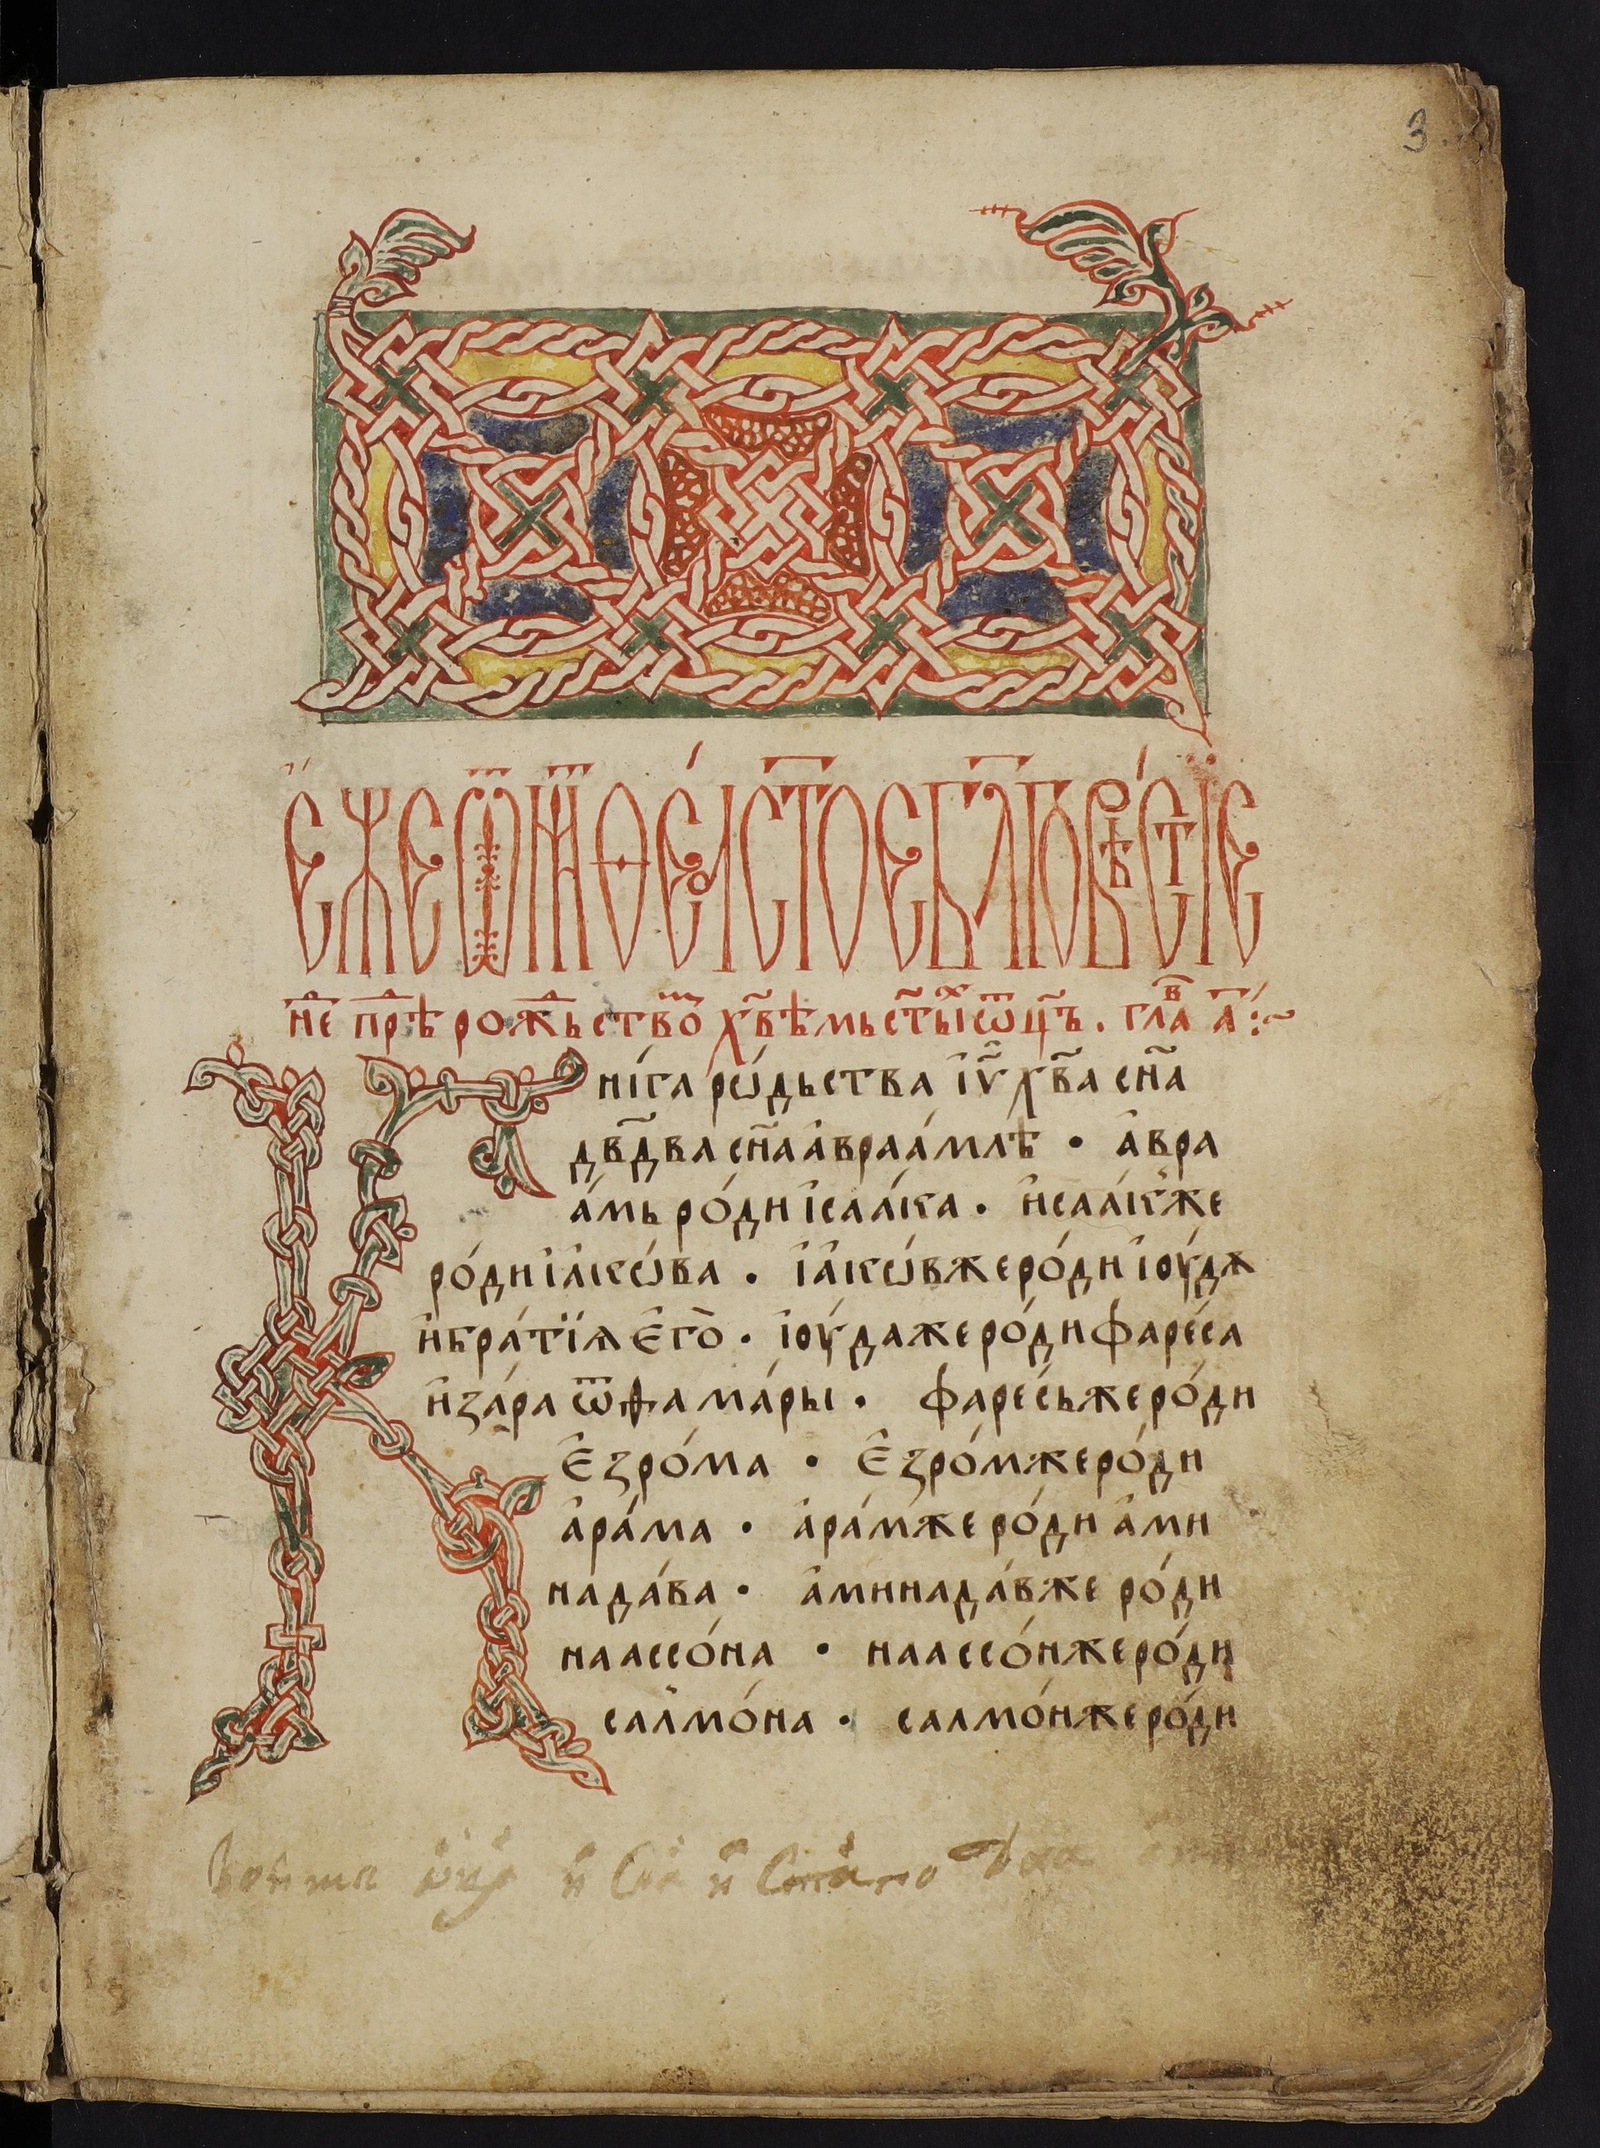 3
Є҆ЖЕѾМАТѲЕѧСТОЕБЛГОВѢСТІЕ
не прѣ рожьство хв҃ѣ мь ст҃ыⷯ ѿц҃ъ. глаⷡ а҃
Книга рѡ́дьства і҆у҃ хв҃а сн҃а
дв҃два сн҃а а҆враа́млѣ • а҆вра
а́мь ро́ди і҆саа́ка • и҆саа́кже
ро́ди і҆а́кѡ́ва • і҆а́кѡ́вже ро́ди і҆оу́дѫ
и҆бра́тїѧ є҆го̀ • і҆оу́да же ро́ди фаре́са
и҆за́ра ѿ ѳама́ры • фаре́сьже ро́ди
є҆зро́ма • є҆зро́мже ро́ди
а҆ра́ма • а҆ра́мже ро́ди а҆ми
нада́ва • а҆минада́вже ро́ди
наассо́на • наассо́нже ро́ди
салмо́на • салмо́нже ро́ди